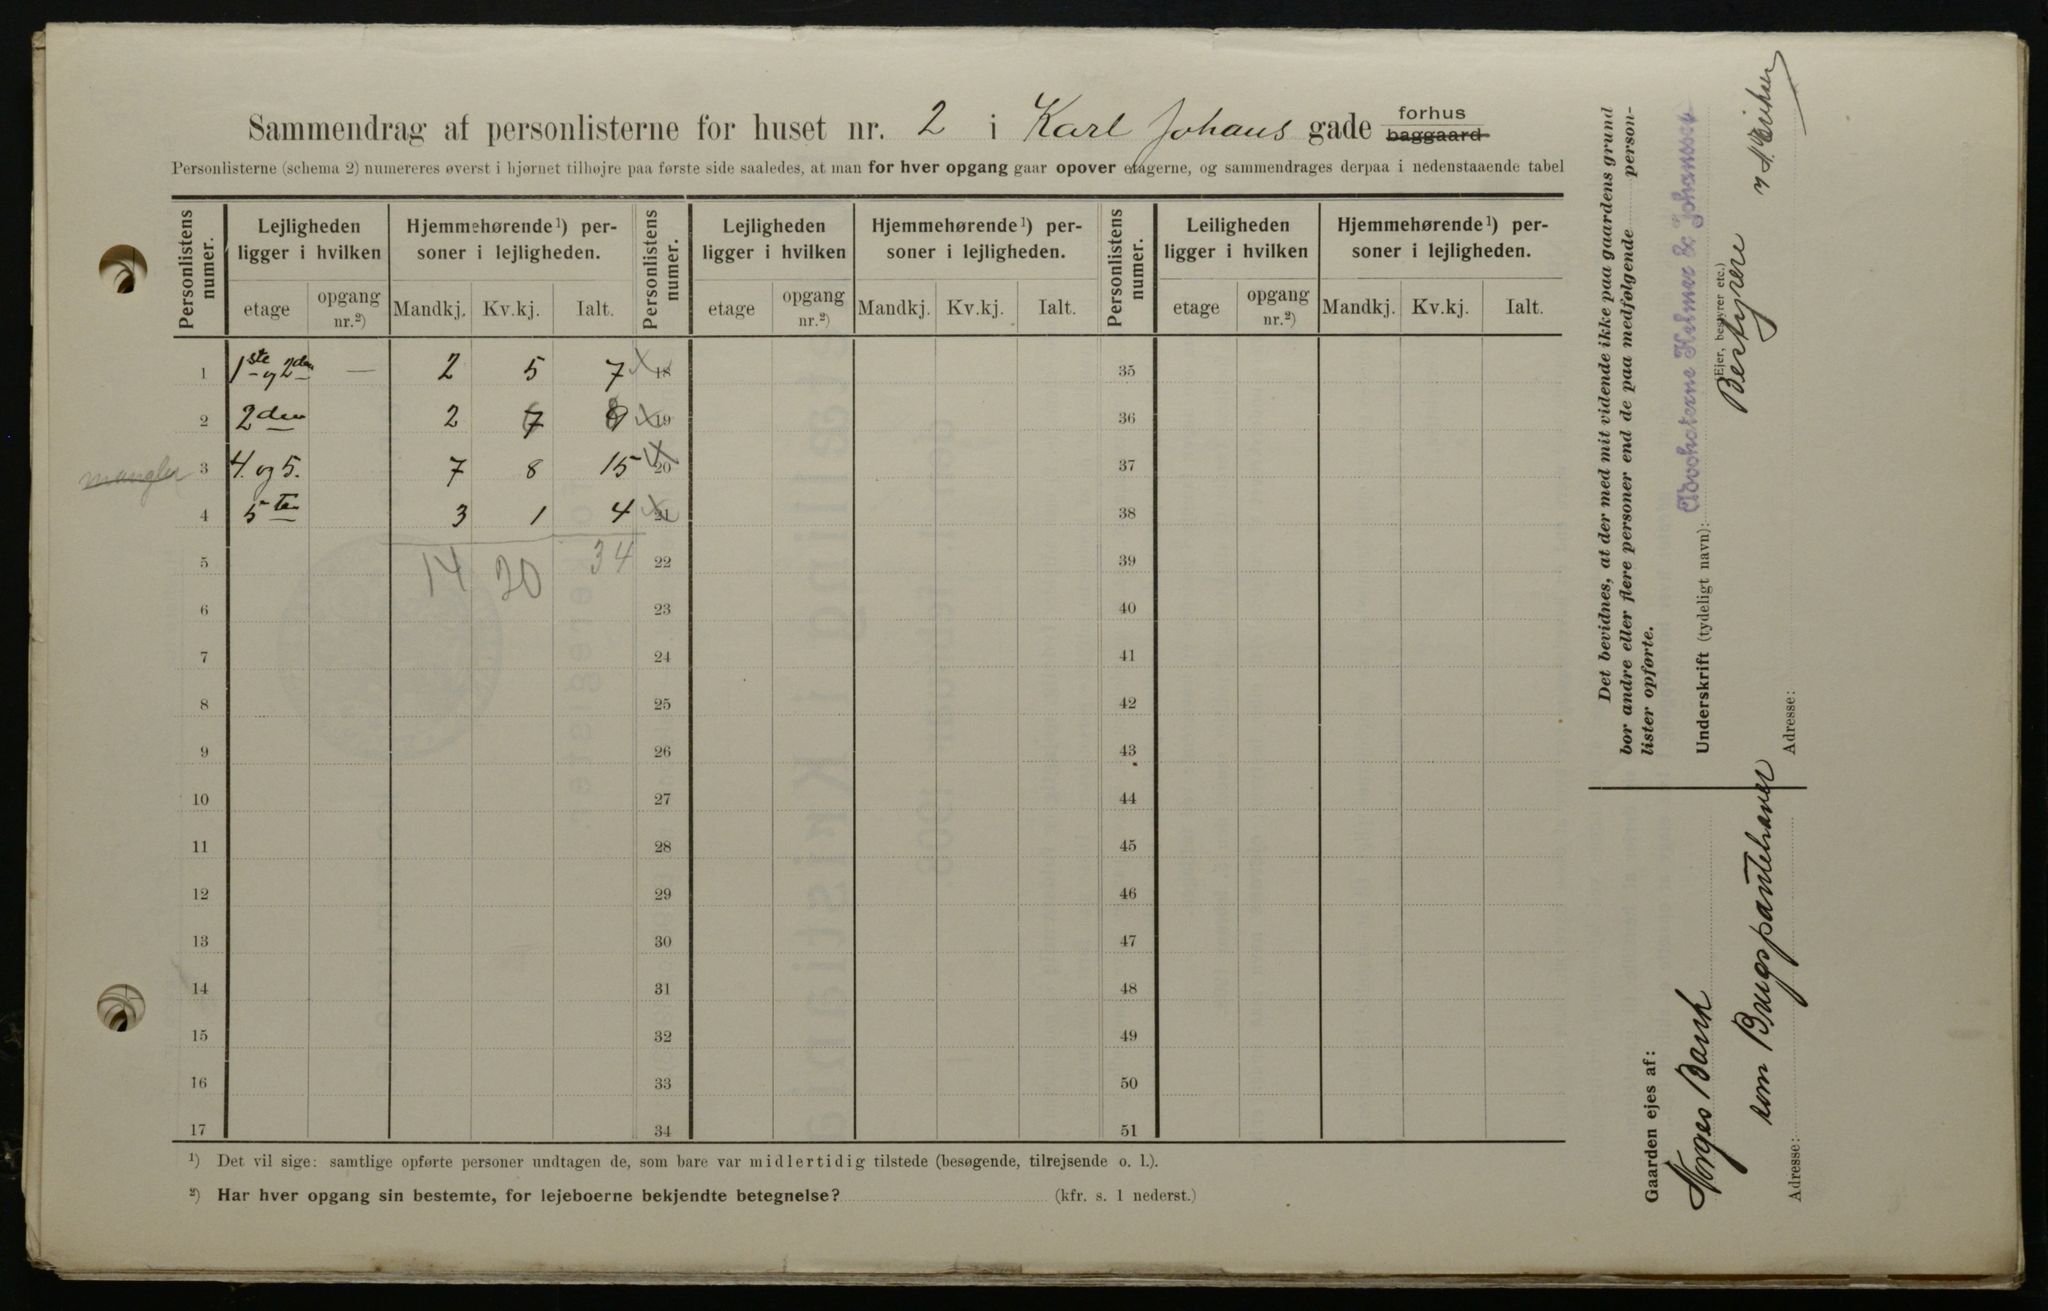 Sammendrag af personlisterne for huset nr. 2 i Karl Johans gade forhus baggaard
Personlisterne (schema 2) numereres øverst i hjørnet tilhøjre paa første side saaledes, at man for hver opgang gaar opover etagerne, og sammendrages derpaa i nedenstaaende tabel
Personlistens numer. Lejligheden ligger i hvilken Hjemmehørende¹) personer i lejligheden. Personlistens numer. Lejligheden ligger i hvilken Hjemmehørende¹) personer i lejligheden. Personlistens numer. Leiligheden ligger i hvilken Hjemmehørende¹) personer i lejligheden.
etage opgang nr.²) Mandkj. Kv.kj. Ialt. etage opgang nr.²) Mandkj. Kv.kj. Ialt. etage opgang nr.²) Mandkj. Kv.kj. Ialt.
1 1ste og 2den — 2 5 7 18 35
2 2den 2 6 8 19 36
mangler 3 4. og 5. 7 8 15 20 37
4 5ten 3 1 4 21 38
5 14 20 34 22 39
6 23 40
7 24 41
8 25 42
9 26 43
10 27 44
11 28 45
12 29 46
13 30 47
14 31 48
15 32 49
16 33 50
17 34 51
¹) Det vil sige: samtlige opførte personer undtagen de, som bare var midlertidig tilstede (besøgende, tilrejsende o. l.).
²) Har hver opgang sin bestemte, for lejeboerne bekjendte betegnelse? (kfr. s. 1 nederst.)
Det bevidnes, at der med mit vidende ikke paa gaardens grund
bor andre eller flere personer end de paa medfølgende person-
lister opførte.
Underskrift (tydeligt navn): Advokaterne Helmer & Johanssen
(Ejer, bestyrer etc.)
Bestyrere
Adresse:
Gaarden ejes af:
Norges Bank
som Brugspantehaver
Adresse: